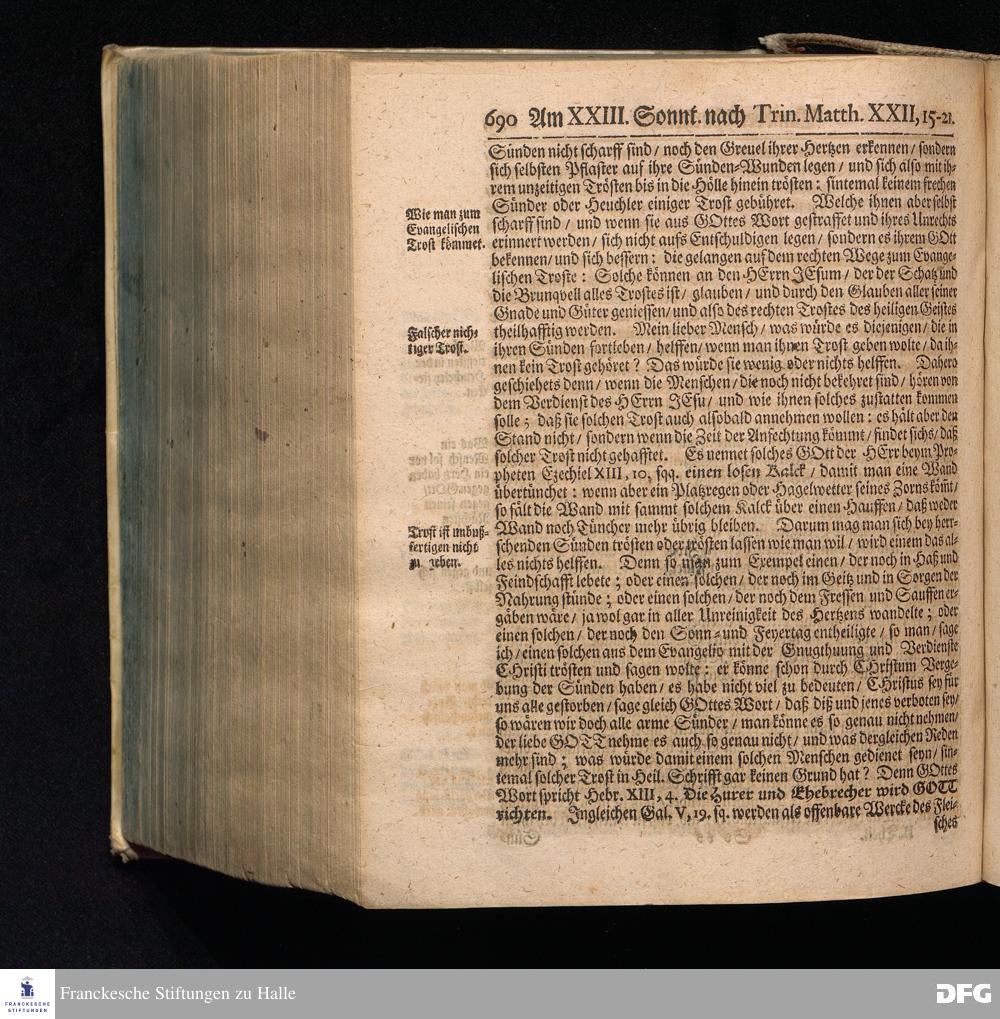 690 Am XXIII. Sonnt. nach Trin. Matth. XXII, 15-21.
Sünden nicht scharff sind / noch den Greuel ihrer Hertzen erkennen / sondern
sich selbsten Pflaster auf ihre Sünden-Wunden legen / und sich also mit ih-
rem unzeitigen Trösten bis in die Hölle hinein trösten: sintemal keinem frechen
Sünder oder Heuchler einiger Trost gebühret. Welche ihnen aber selbst
Wie man zum
Evangelischen
Trost kömmet.
scharff sind / und wenn sie aus GOttes Wort gestraffet und ihres Unrechts
erinnert werden / sich nicht aufs Entschuldigen legen / sondern es ihrem GOtt
bekennen / und sich bessern: die gelangen auf dem rechten Wege zum Evange-
lischen Troste: Solche können an den HErrn JEsum / der der Schatz und
die Brunqvell alles Trostes ist / glauben / und durch den Glauben aller seiner
Gnade und Güter geniessen / und also des rechten Trostes des heiligen Geistes
Falscher nich-
tiger Trost.
theilhafftig werden. Mein lieber Mensch / was würde es diejenigen / die in
ihren Sünden fortleben / helffen / wenn man ihnen Trost geben wolte / da ih-
nen kein Trost gehöret? Das würde sie wenig oder nichts helffen. Dahero
geschiehets denn / wenn die Menschen / die noch nicht bekehret sind / hören von
dem Verdienst des HErrn JEsu / und wie ihnen solches zustatten kommen
solle; daß sie solchen Trost auch alsobald annehmen wollen: es hält aber den
Stand nicht / sondern wenn die Zeit der Anfechtung kömmt / findet sichs / daß
solcher Trost nicht gehafftet. Es nennet solches GOtt der HErr beym Pro-
pheten Ezechiel XIII, 10, sqq. einen losen Kalck / damit man eine Wand
übertünchet: wenn aber ein Platzregen oder Hagelwetter seines Zorns köm̃t /
so fält die Wand mit sammt solchem Kalck über einen Hauffen / daß weder
Trost ist unbuß-
fertigen nicht
zu geben.
Wand noch Tüncher mehr übrig bleiben. Darum mag man sich bey herr-
schenden Sünden trösten oder trösten lassen wie man wil / wird einem das al-
les nichts helffen. Denn so man zum Exempel einen / der noch in Haß und
Feindschafft lebete; oder einen solchen / der noch im Geitz und in Sorgen der
Nahrung stünde; oder einen solchen / der noch dem Fressen und Sauffen er-
gäben wäre / ja wol gar in aller Unreinigkeit des Hertzens wandelte; oder
einen solchen / der noch den Sonn- und Feyertag entheiligte / so man / sage
ich / einen solchen aus dem Evangelio mit der Gnugthuung und Verdienste
CHristi trösten und sagen wolte: er könne schon durch CHristum Verge-
bung der Sünden haben / es habe nicht viel zu bedeuten / CHristus sey für
uns alle gestorben / sage gleich GOttes Wort / daß diß und jenes verboten sey /
so wären wir doch alle arme Sünder / man könne es so genau nicht nehmen /
der liebe GOTT nehme es auch so genau nicht / und was dergleichen Reden
mehr sind; was würde damit einem solchen Menschen gedienet seyn / sin-
temal solcher Trost in Heil. Schrifft gar keinen Grund hat? Denn GOttes
Wort spricht Hebr. XIII, 4. Die Hurer und Ehebrecher wird GOTT
richten. Ingleichen Gal. V, 19. sq. werden als offenbare Wercke des Flei-
sches
FRANCKESCHE
STIFTUNGEN
Franckesche Stiftungen zu Halle
DFG